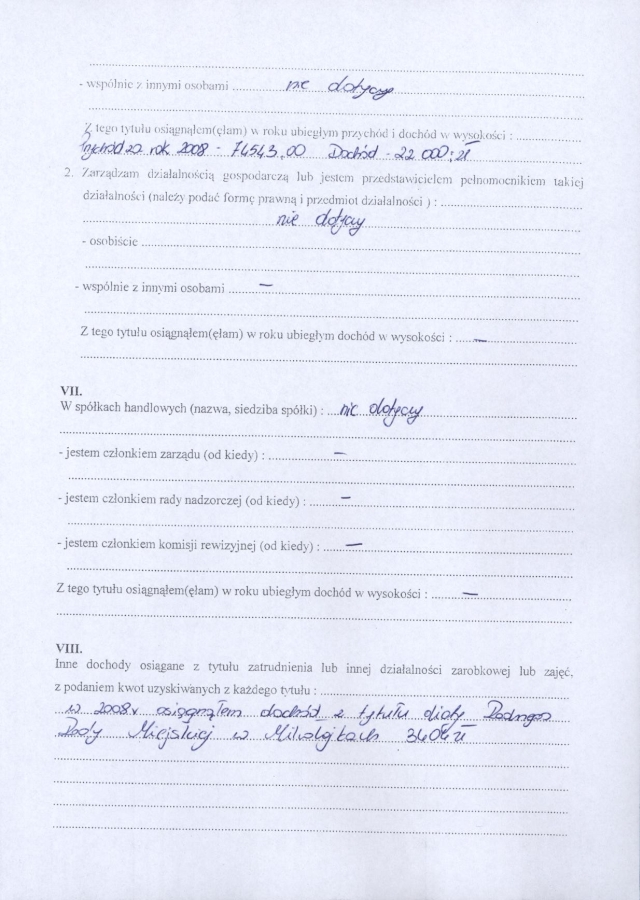 - wspólnie z innymi osobami nie dotyczy
Z tego tytułu osiągnąłem(ęłam) w roku ubiegłym przychód i dochód w wysokości :
Przychód za rok 2008 - 74543,00 Dochód - 22 000; zł
2. Zarządzam działalnością gospodarczą lub jestem przedstawicielem pełnomocnikiem takiej
działalności (należy podać formę prawną i przedmiot działalności ) :
nie dotyczy
- osobiście
- wspólnie z innymi osobami —
Z tego tytułu osiągnąłem(ęłam) w roku ubiegłym dochód w wysokości : —
VII.
W spółkach handlowych (nazwa, siedziba spółki) : nie dotyczy
- jestem członkiem zarządu (od kiedy) : —
- jestem członkiem rady nadzorczej (od kiedy) : —
- jestem członkiem komisji rewizyjnej (od kiedy) : —
Z tego tytułu osiągnąłem(ęłam) w roku ubiegłym dochód w wysokości : —
VIII.
Inne dochody osiągane z tytułu zatrudnienia lub innej działalności zarobkowej lub zajęć,
z podaniem kwot uzyskiwanych z każdego tytułu :
w 2008r osiągnąłem dochód z tytułu diety Radnego
Rady Miejskiej w Mikołajkach 3404 zł